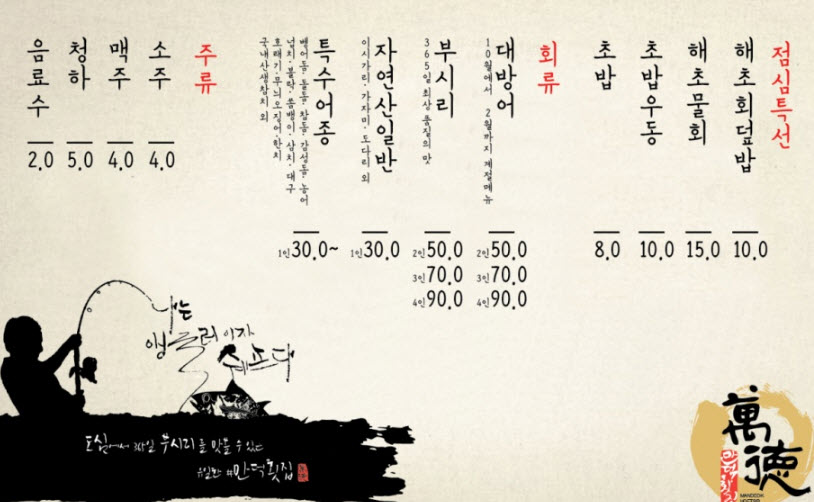 점심특선
해초회덮밥
10.0
해초물회
15.0
초밥우동
10.0
초밥
8.0
회류
대방어
10월에서 2월까지 계절메뉴
2인50.0
3인70.0
4인90.0
부시리
365일 최상 품질의 맛
2인50.0
3인70.0
4인90.0
자연산일반
이시가리·가자미·도다리 외
1인30.0
특수어종
벵어돔·돌돔·참돔·감성돔·농어
넙치·볼락·쏨뱅이·삼치·대구
호래기·무늬오징어·한치
국내산생참치 외
1인30.0~
주류
소주
4.0
맥주
4.0
청하
5.0
음료수
2.0
나는
앵글러이자
쉐프다
도심에서 365일 부시리를 맛볼 수 있는
유일한 #만덕횟집
萬德
만덕횟집